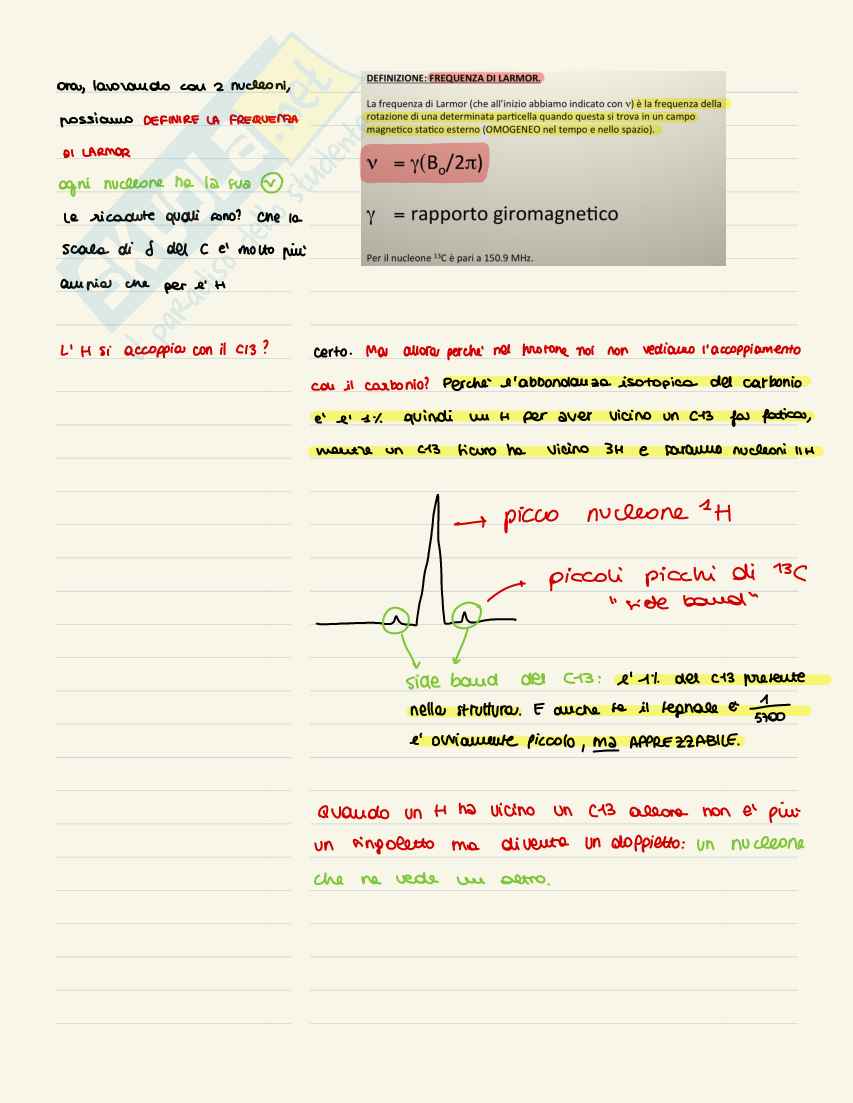 ora, lavorando con 2 nucleoni,
possiamo DEFINIRE LA FREQUENZA
DI LARMOR
ogni nucleone ha la sua ν
Le ricadute quali sono? Che la
scala di δ del C e' molto piu'
ampia che per l' H
DEFINIZIONE: FREQUENZA DI LARMOR.
La frequenza di Larmor (che all'inizio abbiamo indicato con ν) è la frequenza della
rotazione di una determinata particella quando questa si trova in un campo
magnetico statico esterno (OMOGENEO nel tempo e nello spazio).
ν = γ(B₀/2π)
γ = rapporto giromagnetico
Per il nucleone ¹³C è pari a 150.9 MHz.
L' H si accoppia con il C13?
certo. Ma allora perche' nel protone noi non vediamo l'accoppiamento
con il carbonio? Perche' l'abbondanza isotopica del carbonio
e' l' 1% quindi un H per aver vicino un C13 fa fatica,
mentre un C13 sicuro ha vicino 3H e saranno nucleoni
picco nucleone ¹H
piccoli picchi di ¹³C
"side band"
side band del C13: l' 1% del C13 presente
nella struttura. E anche se il segnale è 1/5700
e' ovviamente piccolo, ma APPREZZABILE.
Quando un H ha vicino un C13 allora non e' piu'
un singoletto ma diventa un doppietto: un nucleone
che ne vede un altro.
SKUOLA.net
il paradiso dello studente